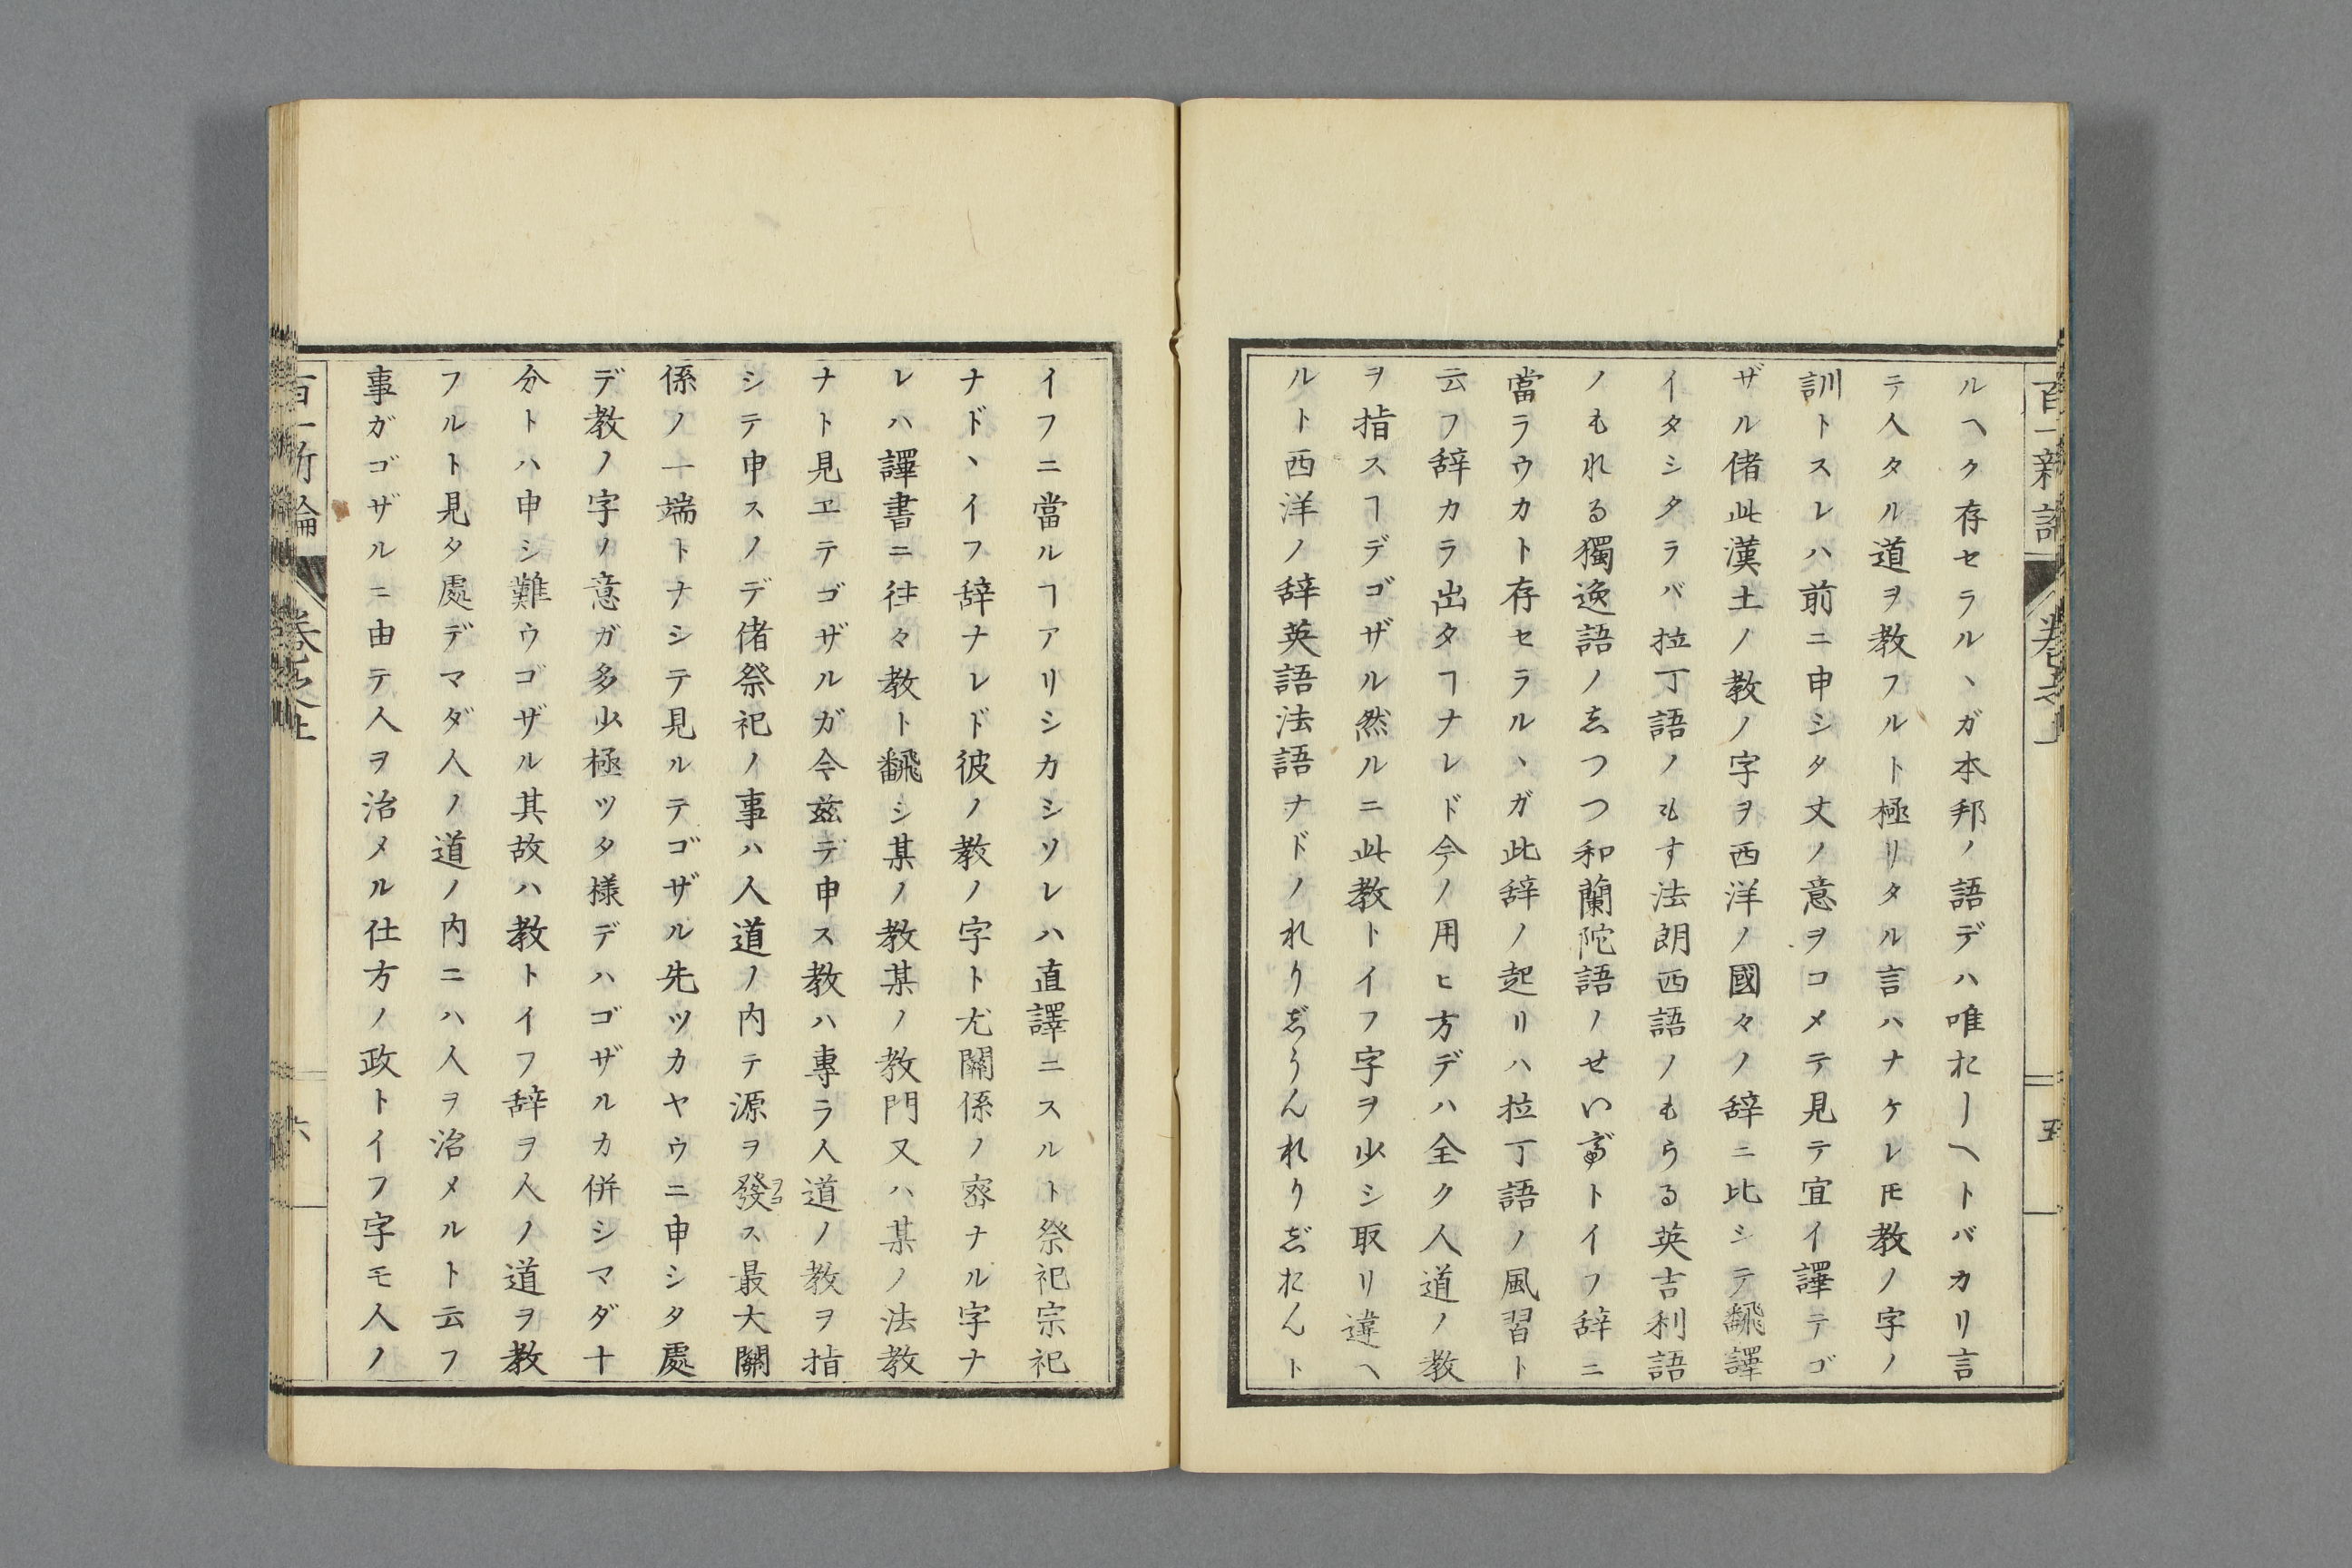 百一新論 卷之上 五
ルヘク存セラルヽガ本邦ノ語デハ唯おーヘトバカリ言
テ人タル道ヲ教フルト極リタル言ハナケレ𪜈教ノ字ノ
訓トスレハ前ニ申シタ丈ノ意ヲコメテ見テ宜イ譯テゴ
ザル偖此漢土ノ教ノ字ヲ西洋ノ國々ノ辞ニ比シテ飜譯
イタシタラバ拉丁語ノもす法朗西語ノもうる英吉利語
ノもれる獨逸語ノゑつつ和蘭陀語ノせいがトイフ辞ニ
當ラウカト存セラルヽガ此辞ノ起リハ拉丁語ノ風習ト
云フ辞カラ出タヿナレド今ノ用ヒ方デハ全ク人道ノ教
ヲ指スヿデゴザル然ルニ此教トイフ字ヲ少シ取リ違ヘ
ルト西洋ノ辞英語法語ナドノれりぢうんれりぢおんト
イフニ當ルヿアリシカシソレハ直譯ニスルト祭祀宗祀
ナドヽイフ辞ナレド彼ノ教ノ字ト尤關係ノ密ナル字ナ
レハ譯書ニ往々教ト飜シ某ノ教某ノ教門又ハ某ノ法教
ナト見ヱテゴザルガ今茲デ申ス教ハ專ラ人道ノ教ヲ指
シテ申スノデ偖祭祀ノ事ハ人道ノ内テ源ヲ發ス最大關
係ノ一端トナシテ見ルテゴザル先ツカヤウニ申シタ處
デ教ノ字ノ意ガ多少極ツタ様デハゴザルカ併シマダ十
分トハ申シ難ウゴザル其故ハ教トイフ辞ヲ人ノ道ヲ教
フルト見タ處デマダ人ノ道ノ内ニハ人ヲ治メルト云フ
事ガゴザルニ由テ人ヲ治メル仕方ノ政トイフ字モ人ノ
百一新論 卷之上 六